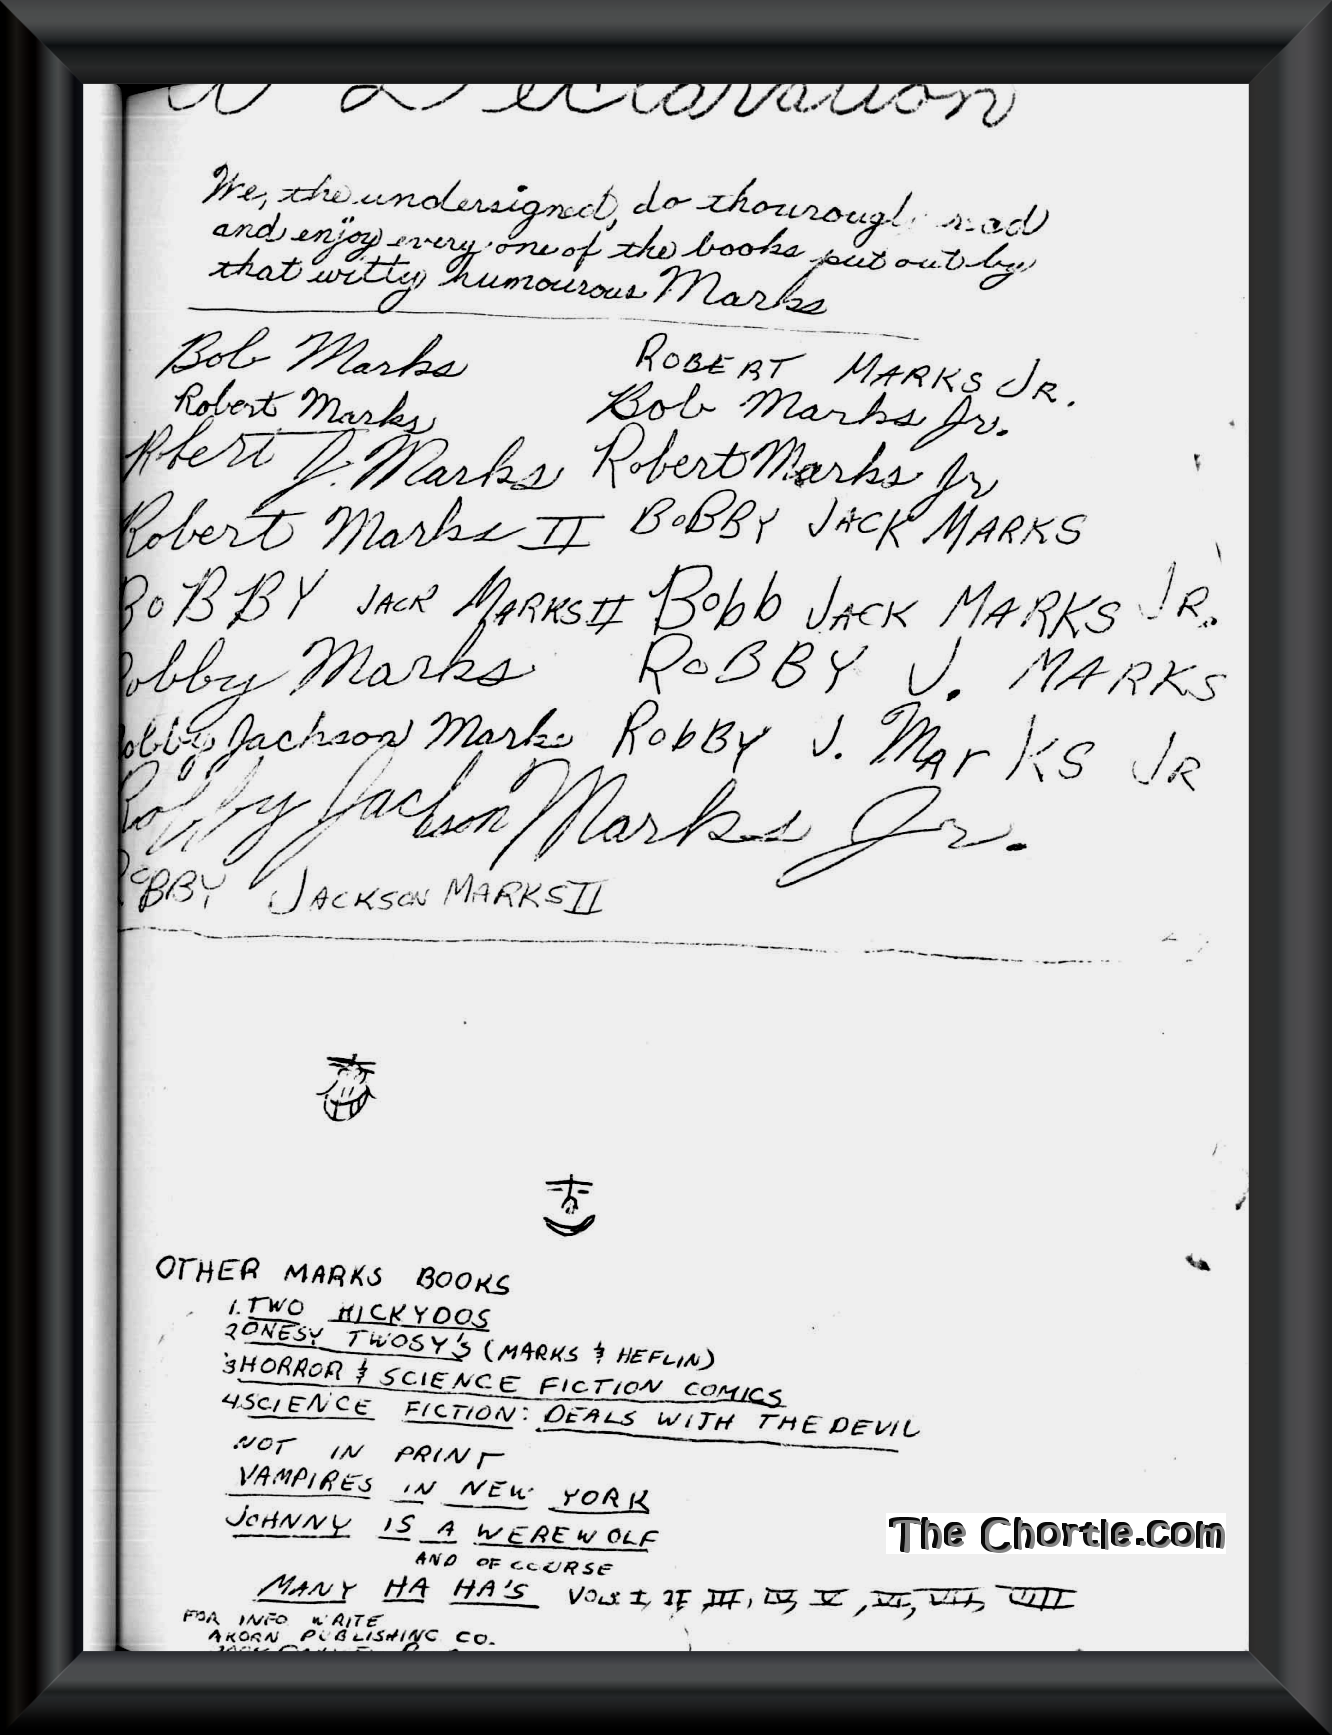 a Declaration
We, the undersigned, do thourough read
and enjoy every one of the books put out by
that witty humourous Marks
Bob Marks
ROBERT MARKS JR.
Robert Marks
Bob Marks Jr.
Rbert J. Marks
Robert Marks Jr
Robert Marks II
BOBBY JACK MARKS
BOBBY JACK MARKS II
Bobb JACK MARKS JR.
obby Marks
ROBBY J. MARKS
obby Jackson Marks
RObBY J. MarKS JR
Robby Jackson Marks Jr.
ROBBY JACKSON MARKS II
OTHER MARKS BOOKS
1. TWO HICKYDOS
2 ONESY TWOSY'S (MARKS & HEFLIN)
3 HORROR & SCIENCE FICTION COMICS
4 SCIENCE FICTION: DEALS WITH THE DEVIL
NOT IN PRINT
VAMPIRES IN NEW YORK
JOHNNY IS A WEREWOLF
AND OF COURSE
MANY HA HA'S VOLS I, II, III, IV, V, VI, VII, VIII
FOR INFO WRITE
AKORN PUBLISHING CO.
The Chortle.com